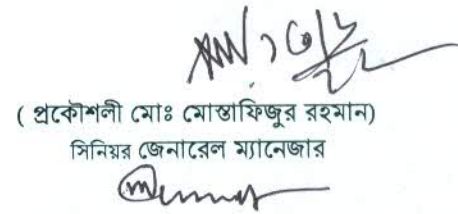 ( প্রকৌশলী মোঃ মোস্তাফিজুর রহমান)
সিনিয়র জেনারেল ম্যানেজার